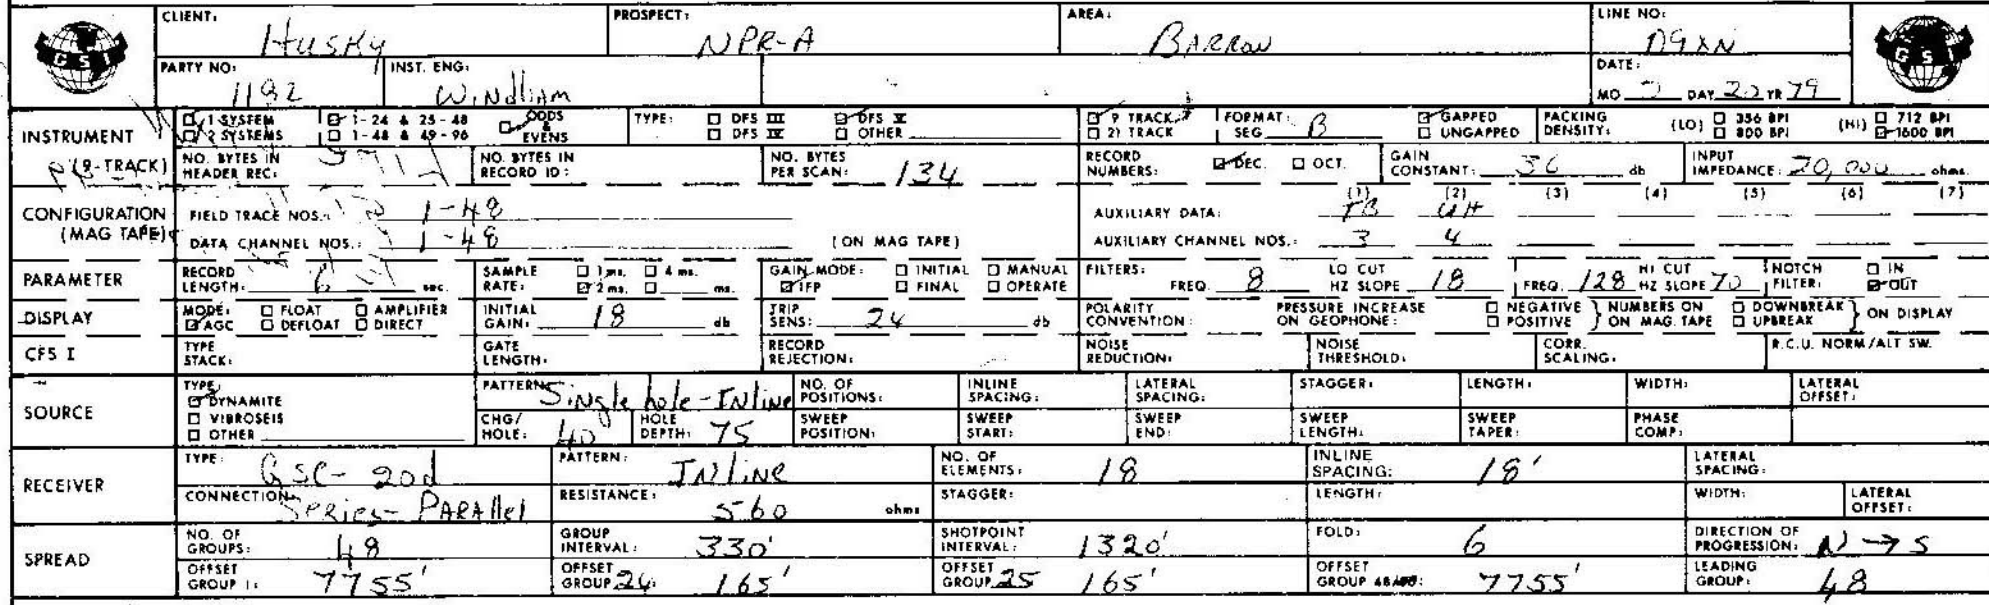 CLIENT: Husky PROSPECT: NPR-A AREA: BARROW LINE NO: 09XN
GSI GSI
PARTY NO: 1192 INST. ENG: Windham DATE: MO DAY 20 YR 79
INSTRUMENT 1 SYSTEM 1-24 & 25-48 ODDS & EVENS TYPE: DFS III DFS V 9 TRACK FORMAT: SEG B GAPPED PACKING DENSITY: (LO) 356 BPI (HI) 712 BPI
2 SYSTEMS 1-48 & 49-96 DFS IV OTHER 21 TRACK UNGAPPED 800 BPI 1600 BPI
(9-TRACK) NO. BYTES IN HEADER REC: NO. BYTES IN RECORD ID: NO. BYTES PER SCAN: 134 RECORD NUMBERS: DEC. OCT. GAIN CONSTANT: 36 db INPUT IMPEDANCE: 20,000 ohms.
CONFIGURATION (MAG TAPE) FIELD TRACE NOS.: 1-48 AUXILIARY DATA: (1) TB (2) UH (3) (4) (5) (6) (7)
DATA CHANNEL NOS.: 1-48 (ON MAG TAPE) AUXILIARY CHANNEL NOS.: 3 4
PARAMETER RECORD LENGTH: 6 sec. SAMPLE RATE: 1 ms. 4 ms. 2 ms. ms. GAIN MODE: INITIAL MANUAL IFP FINAL OPERATE FILTERS: FREQ. 8 LO CUT HZ SLOPE 18 FREQ. 128 HI CUT HZ SLOPE 70 NOTCH FILTER: IN OUT
DISPLAY MODE: FLOAT AMPLIFIER AGC DEFLOAT DIRECT INITIAL GAIN: 18 db TRIP SENS: 24 db POLARITY CONVENTION: PRESSURE INCREASE ON GEOPHONE: NEGATIVE POSITIVE } NUMBERS ON MAG. TAPE DOWNBREAK UPBREAK } ON DISPLAY
CFS I TYPE STACK: GATE LENGTH: RECORD REJECTION: NOISE REDUCTION: NOISE THRESHOLD: CORR. SCALING: R.C.U. NORM/ALT SW.
SOURCE TYPE: DYNAMITE VIBROSEIS OTHER PATTERN: Single hole-INline NO. OF POSITIONS: INLINE SPACING: LATERAL SPACING: STAGGER: LENGTH: WIDTH: LATERAL OFFSET:
CHG/HOLE: 40 HOLE DEPTH: 75 SWEEP POSITION: SWEEP START: SWEEP END: SWEEP LENGTH: SWEEP TAPER: PHASE COMP:
RECEIVER TYPE: GSC-20d PATTERN: INline NO. OF ELEMENTS: 18 INLINE SPACING: 18' LATERAL SPACING:
CONNECTION: Series-PARAllel RESISTANCE: 560 ohms STAGGER: LENGTH: WIDTH: LATERAL OFFSET:
SPREAD NO. OF GROUPS: 48 GROUP INTERVAL: 330' SHOTPOINT INTERVAL: 1320' FOLD: 6 DIRECTION OF PROGRESSION: N→S
OFFSET GROUP 1: 7755' OFFSET GROUP 24: 165' OFFSET GROUP 25 165' OFFSET GROUP 48/: 7755' LEADING GROUP: 48